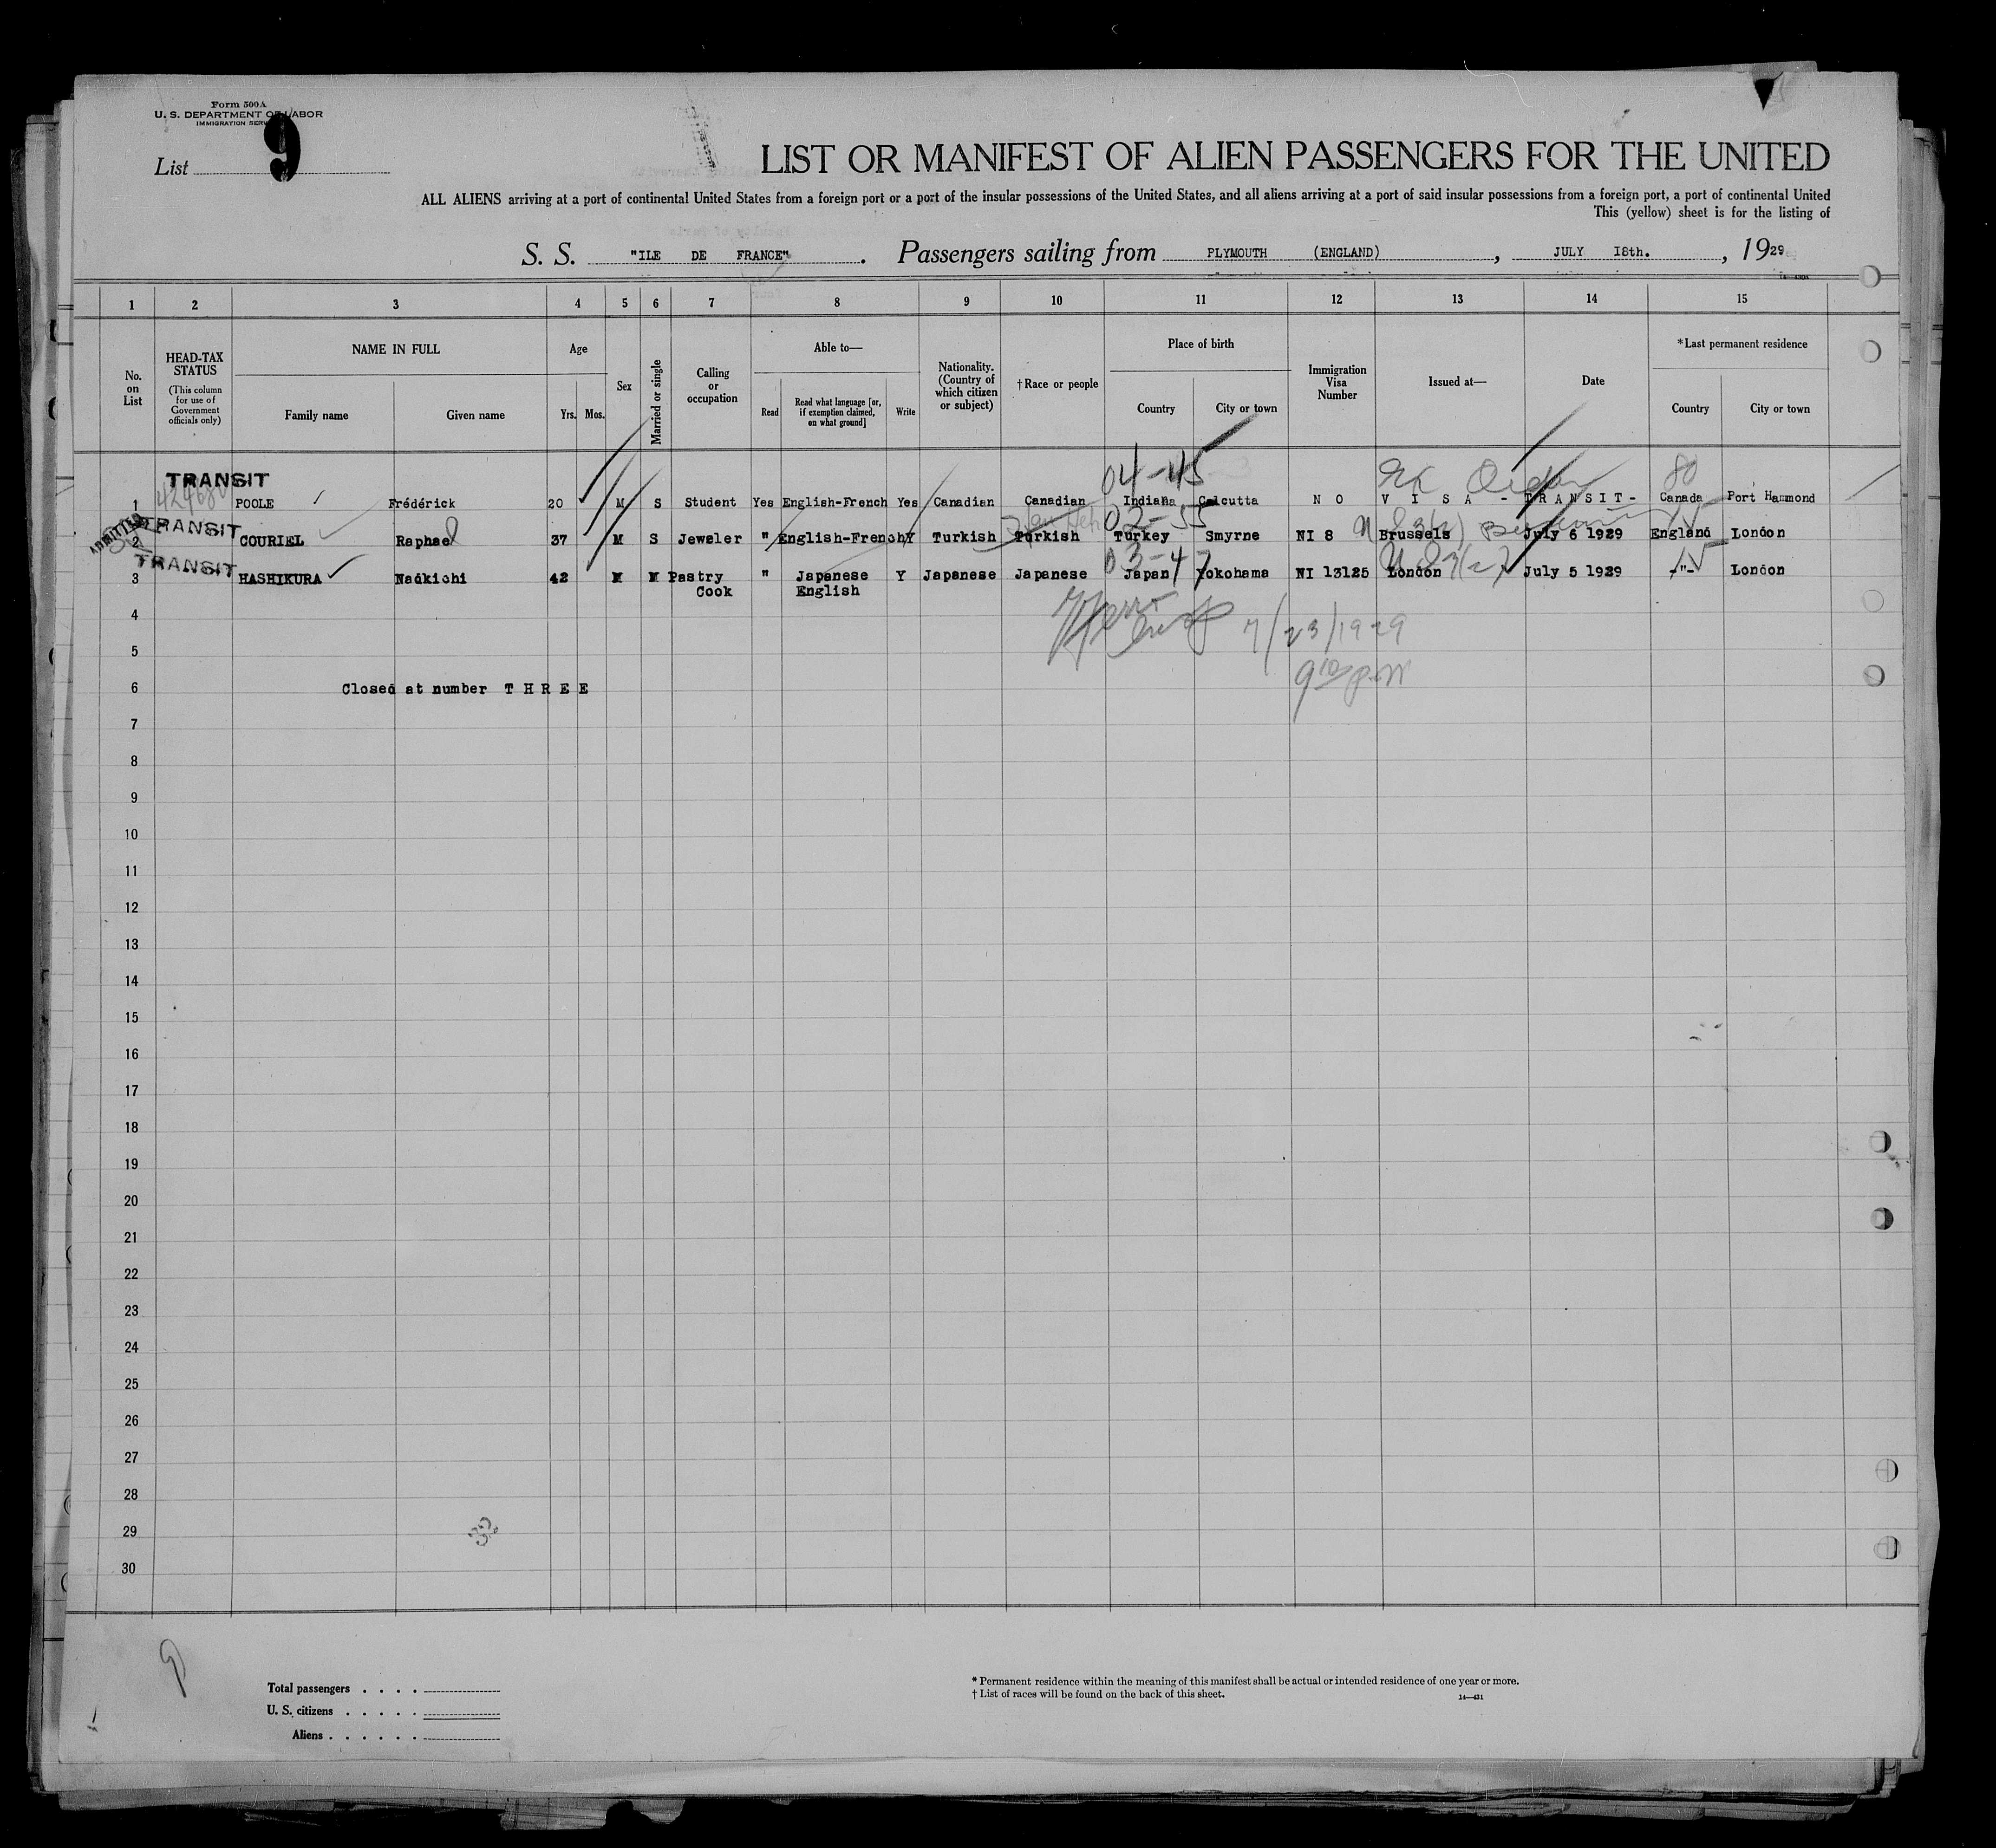 Form 500A
U. S. DEPARTMENT OF LABOR
IMMIGRATION SERV
List 9
LIST OR MANIFEST OF ALIEN PASSENGERS FOR THE UNITED
ALL ALIENS arriving at a port of continental United States from a foreign port or a port of the insular possessions of the United States, and all aliens arriving at a port of said insular possessions from a foreign port, a port of continental United
This (yellow) sheet is for the listing of
S. S. "ILE DE FRANCE". Passengers sailing from PLYMOUTH (ENGLAND), JULY 18th., 1929
1 2 3 4 5 6 7 8 9 10 11 12 13 14 15
No. on List
HEAD-TAX STATUS (This column for use of Government officials only)
NAME IN FULL
Family name Given name
Age
Yrs. Mos.
Sex
Married or single
Calling or occupation
Able to—
Read Read what language [or, if exemption claimed, on what ground] Write
Nationality. (Country of which citizen or subject)
†Race or people
Place of birth
Country City or town
Immigration Visa Number
Issued at—
Date
*Last permanent residence
Country City or town
TRANSIT 04-45 80
1 POOLE Frédérick 20 M S Student Yes English-French Yes Canadian Canadian Indiana Calcutta NO VISA -TRANSIT- Canada Port Hammond
TRANSIT 02-55
ADMITTED
2 COURIEL Raphael 37 M S Jeweler " English-French Y Turkish Turkish Turkey Smyrne NI 8 Brussels July 6 1929 England London
TRANSIT 03-47
3 HASHIKURA Naokichi 42 M M Pastry Cook " Japanese English Y Japanese Japanese Japan Yokohama NI 13125 London July 5 1929 -"- London
4
7/23/1929
5
9 10 P.M
6 Closed at number THREE
7
8
9
10
11
12
13
14
15
16
17
18
19
20
21
22
23
24
25
26
27
28
29
30
9
Total passengers
U. S. citizens
Aliens
* Permanent residence within the meaning of this manifest shall be actual or intended residence of one year or more.
† List of races will be found on the back of this sheet.
14—431